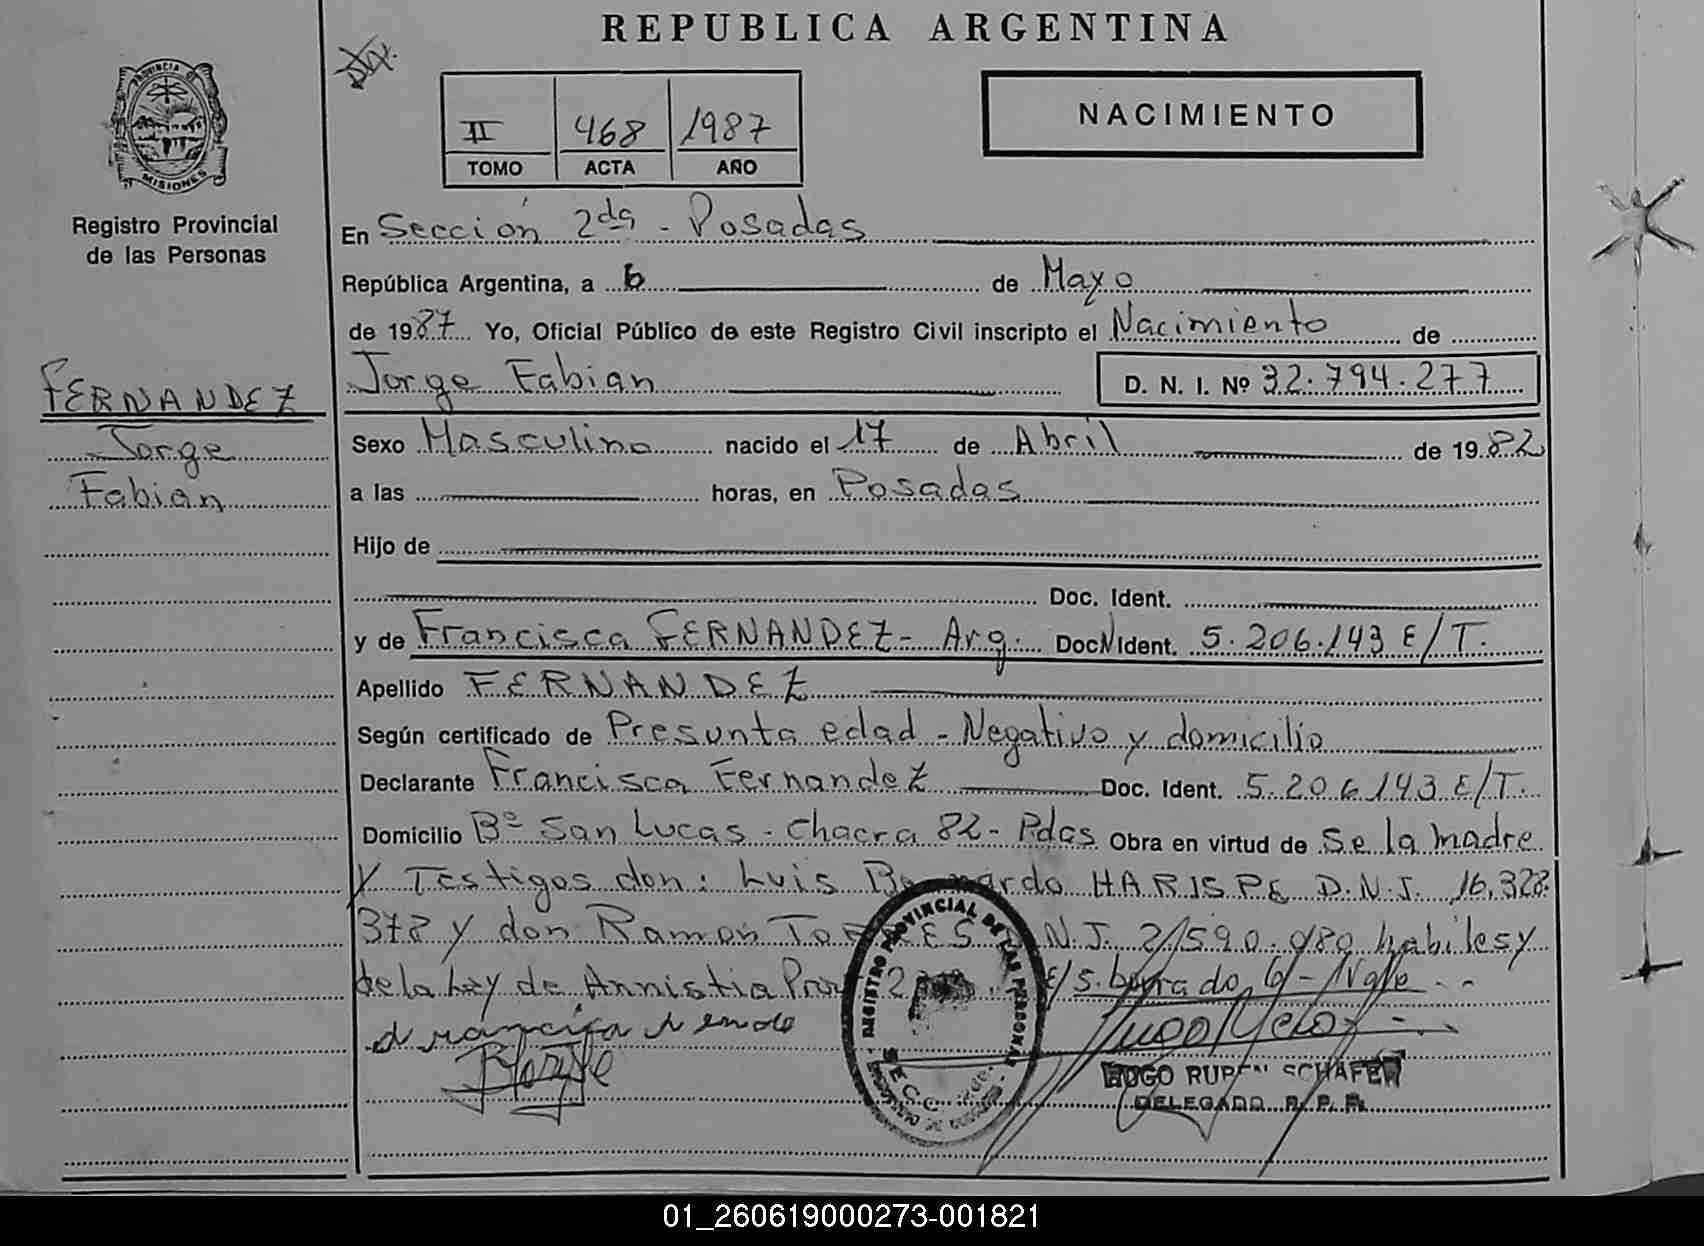 REPUBLICA ARGENTINA
PROVINCIA DE
MISIONES
Registro Provincial
de las Personas
II 468 1987
TOMO ACTA AÑO
NACIMIENTO
En Sección 2da - Posadas
República Argentina, a 6 de Mayo
de 1987 Yo, Oficial Público de este Registro Civil inscripto el Nacimiento de
Jorge Fabian D. N. I. Nº 32.794.277
FERNANDEZ
Jorge
Fabian
Sexo Masculino nacido el 17 de Abril de 1982
a las horas, en Posadas
Hijo de
Doc. Ident.
y de Francisca FERNANDEZ - Arg. Doc. Ident. 5.206.143 E/T.
Apellido FERNANDEZ
Según certificado de Presunta edad - Negativo y domicilio
Declarante Francisca Fernandez Doc. Ident. 5.206.143 E/T.
Domicilio Bº San Lucas - Chacra 82 - Pdas Obra en virtud de Se la madre
y Testigos don: Luis Bernardo HARISPE D.N.I. 16.328.
378 y don Ramon TORRES D.N.I. 21590.980 habiles y
de la Ley de Amnistia E/s. borrado, 6 - Vale
REGISTRO PROVINCIAL DE LAS PERSONAS
SECC.
HUGO RUBEN SCHAFER
DELEGADO R. P. P.
01_260619000273-001821